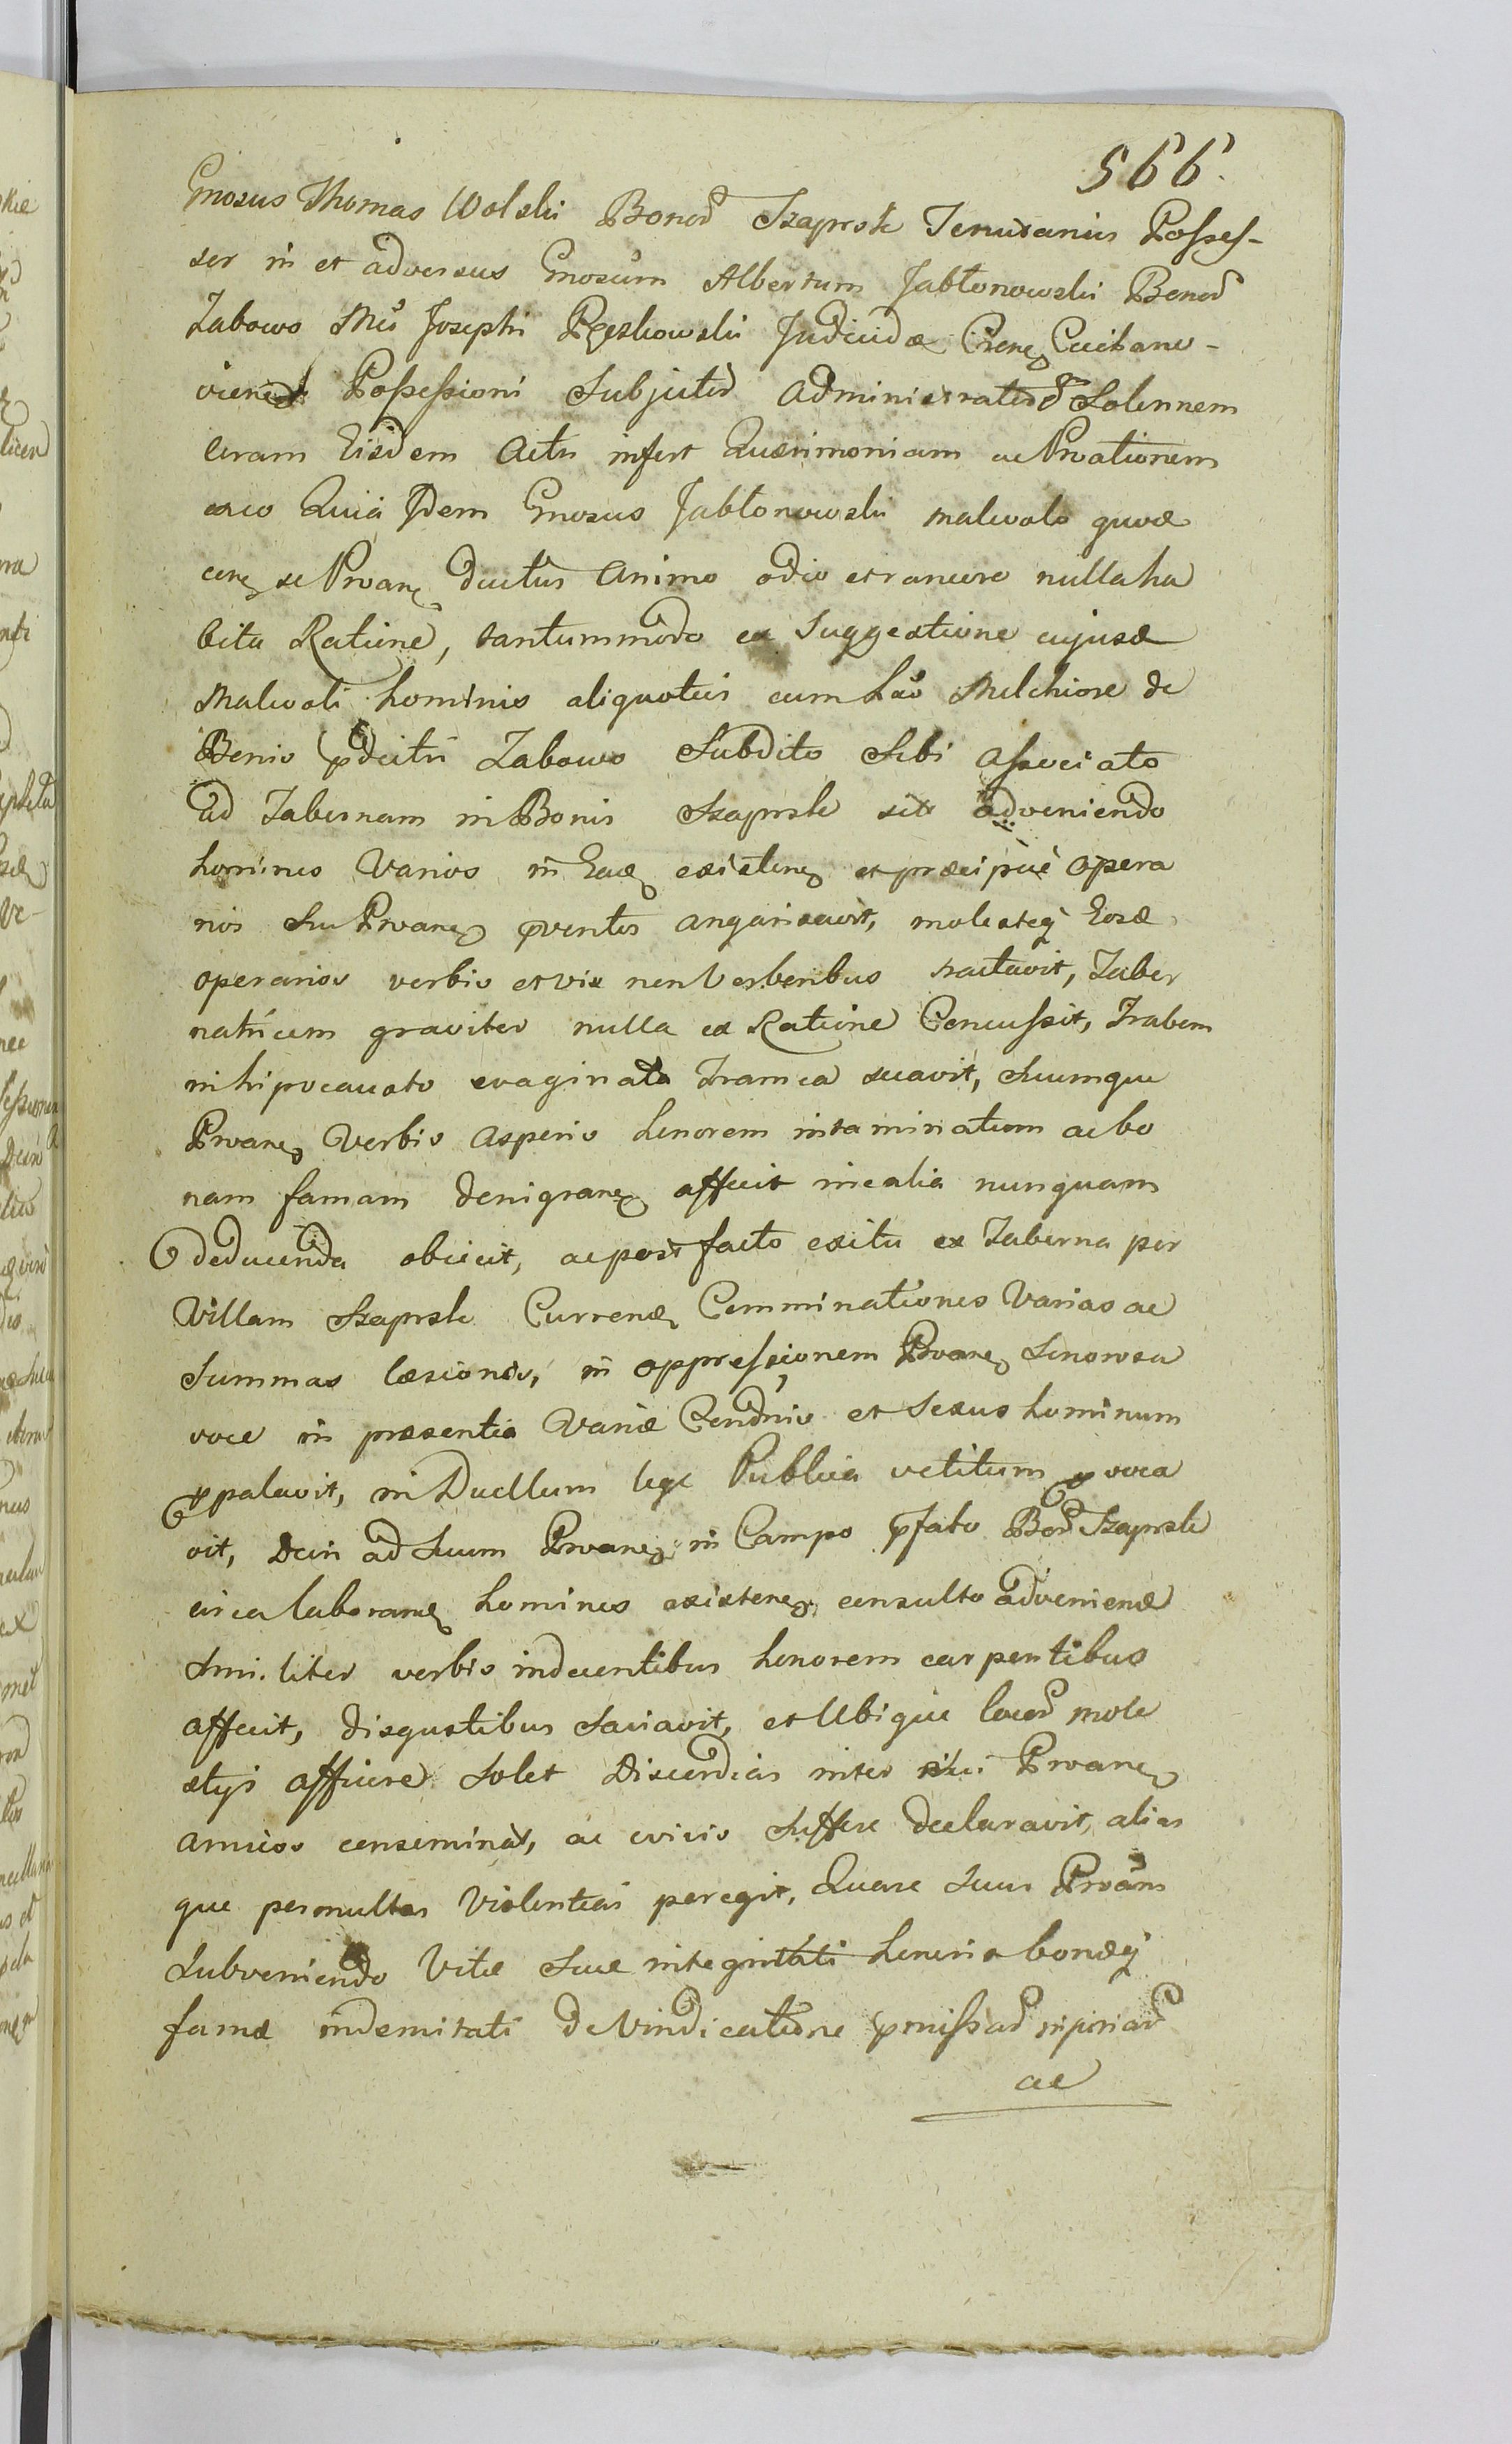 566.
Gnosus Thomas Wolski Bonor Szaprsk Tenutarius Possef-
sor in et adversus Gnosum Albertum Jabłonowski Bonor
Zabowo Mci Josephi Rzeskowski Judicid
Possessioni Subjector Administrator Solennem
coram Eisdem Actis infert Quærimoniam ac Proationem
exeo Quia Idem Gnosus Jabłonowski malevolo
se Proane ductus Animo odio et rancore nulla ha
bita Ratione, tantummodo ex Suggestione cujusd
Malevoli hominis aliquoties cum Lab Melchiore de
Bonis pdictis Zabowo Subdito Sibi Associato
ad Tabernam in Bonis Szaprsk sit adveniendo
homines Varios in Ead existen et præcipue opera
rios Sui Proane pventos angarisavit, molesteq Eosd
operarios verbis et vix non Verberibus tractavit, Taber
natricem graviter nulla ex Ratione Concussit, Trabem
in hipocausto evaginata Framea secavit, Suumque
Proane Verbis Asperis honorem intaminatum ac bo
nam famam denigran affecit mealia nunquam
deducenda objecit, ac post facto exitu ex Taberna per
Villam Szaprsk Curren Comminationes Varias ac
Summas læsiones, in oppressionem Proane Sonorosa
voce in præsentia Variæ Condnis et Sexus hominum
ppalavit, in Duellum lege Publica vetitum pvoca
vit, Dein ad Suum Proane in Campo pfato Bor Szaprsk
circa laboran homines existen consulto advenien
Similiter verbis indecentibus honorem carpentibus
affecit, disgustibus Satiavit, et Ubique locor mole
stijs afficere Solet Discordias inter Sui Proane
amicos conseminat, ac evicis Suffere declaravit, alias
que permultas Violentias peregit, Quare Suus Proans
Subveniendo Vitæ Suæ integritati honoris bonæq
famæ indemnitati de Vindicatione pmissar injuriar
ac